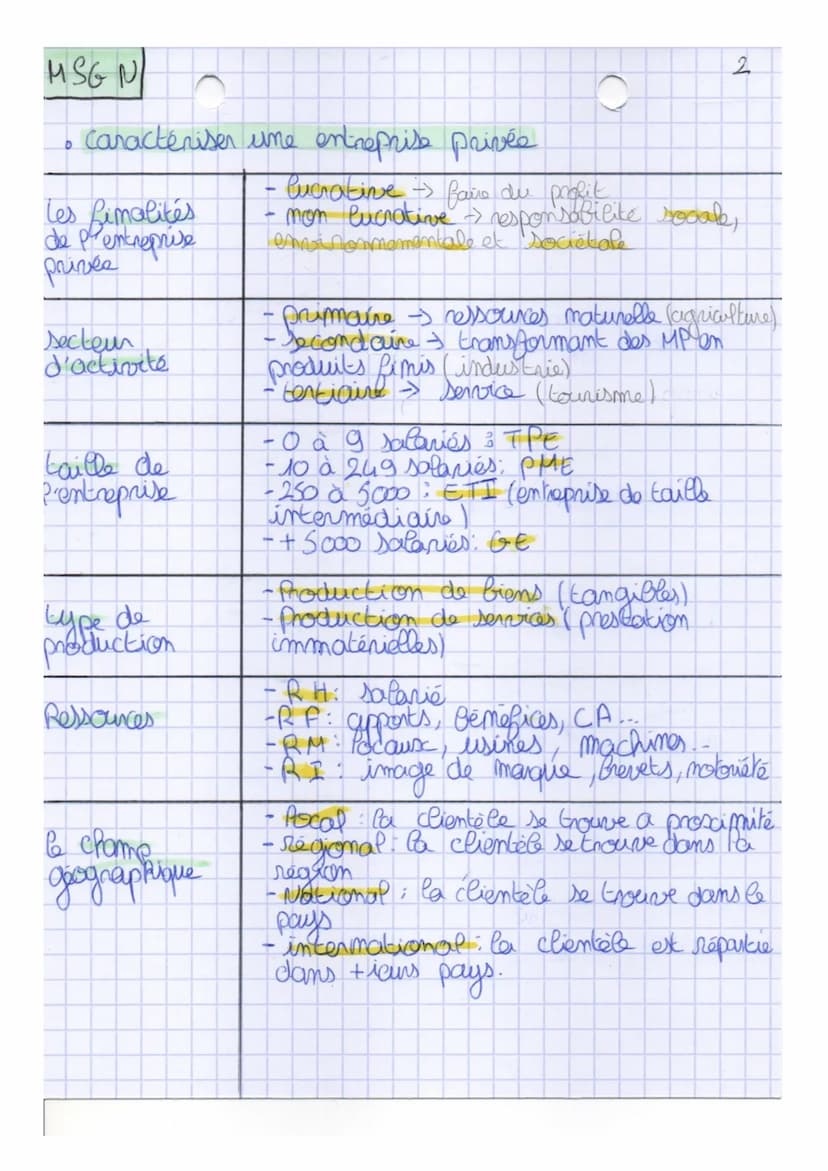 MSG N
2
• caractériser une entreprise privée
les finalités
de l'entreprise
privée
- lucrative → faire du profit
- non lucrative → responsabilité sociale,
environnementale et sociétale
secteur
d'activité
- primaire → ressources naturelle (agriculture)
- secondaire → transformant des MP en
produits finis (industrie)
- tertiaire → service (tourisme)
taille de
l'entreprise
- 0 à 9 salariés : TPE
- 10 à 249 salariés : PME
- 250 à 5000 : ETI (entreprise de taille
intermédiaire)
- + 5000 salariés : GE
type de
production
- Production de biens (tangibles)
- Production de services (prestation
immatérielles)
Ressources
- RH : salarié
- RF : apports, Bénéfices, CA...
- RM : locaux, usines, machines...
- RI : image de marque, brevets, notoriété
le champ
géographique
- local : la clientèle se trouve a proximité
- régional : la clientèle se trouve dans la
région
- National : la clientèle se trouve dans le
pays
- international : la clientèle est répartie
dans +ieurs pays.